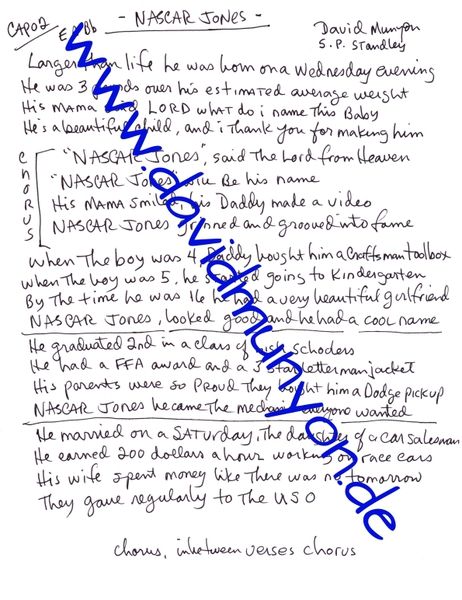 CAPO2
- NASCAR JONES -
David Munyon
S.P. STANdLEY
Larger than life he was born on a Wednesday evening
He was 3 pounds over his estimated average weight
His MAMA said LORD what do i name This Baby
He's a beautiful child, and i Thank you for making him
CHORUS
"NASCAR JONES", said The Lord from Heaven
"NASCAR JONES" will Be his name
His MAMA smiled, his Daddy made a video
NASCAR JONES grinned and grooved into fame
When The boy was 4 Daddy bought him a Craftsman toolbox
when The boy was 5, he started going to Kindergarten
By The time he was 16 he had a very beautiful girlfriend
NASCAR JONES, looked good and he had a cool name
He graduated 2nd in a class of high schoolers
He had a FFA award and a 3 star letterman jacket
His parents were so PROUD They bought him a Dodge pickup
NASCAR JONES became The mechanic everyone wanted
He married on a SATURDAY, The daughter of a car salesman
He earned 200 dollars a hour working on race cars
His wife spent money like There was no tomorrow
They gave regularly to The USO
chorus, inbetween verses chorus
www.davidmunyon.de